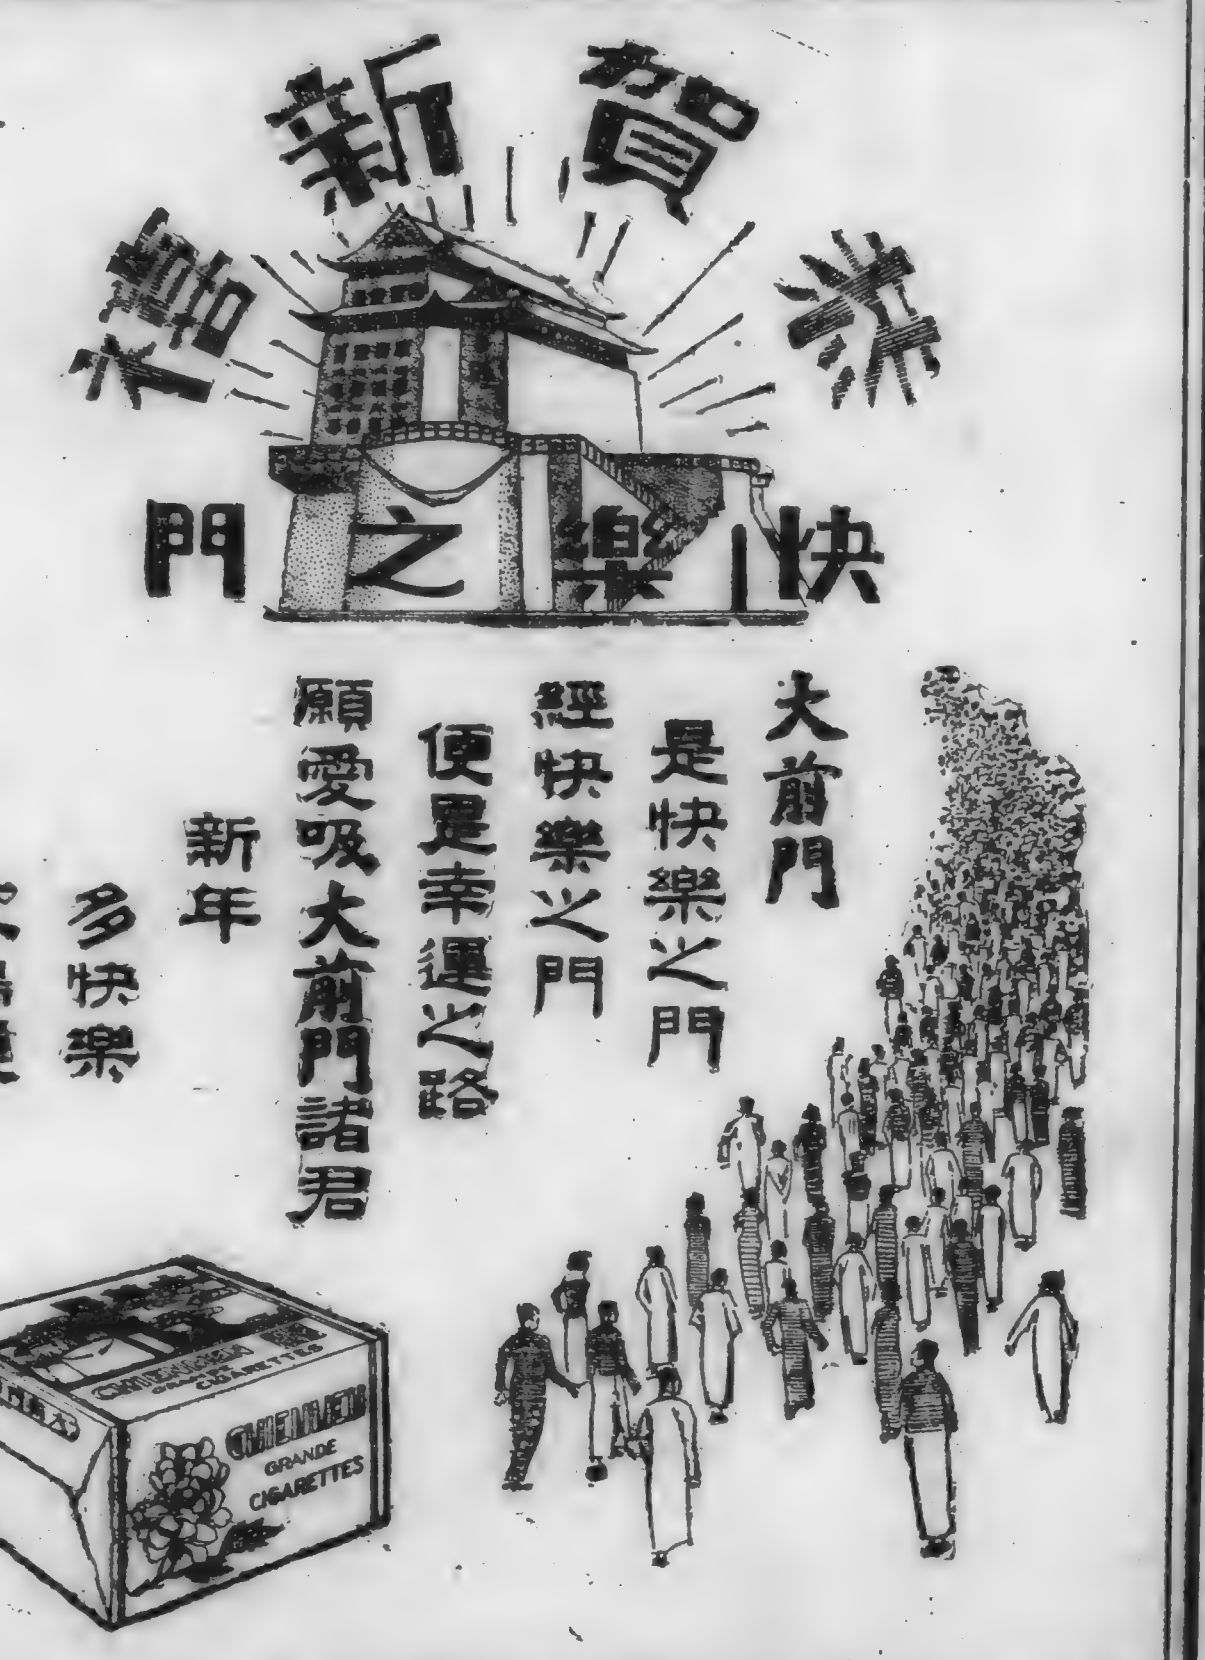 恭賀新禧
快樂之門
大前門
是快樂之門
經快樂之門
便是幸運之路
願愛吸大前門諸君
新年
多快樂
CHIENMEN
CIGARETTES
CHIENMEN
GRANDE
CIGARETTES